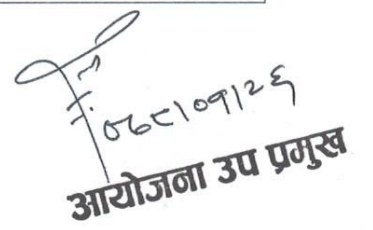 ०७८।०१।२६
आयोजना उप प्रमुख